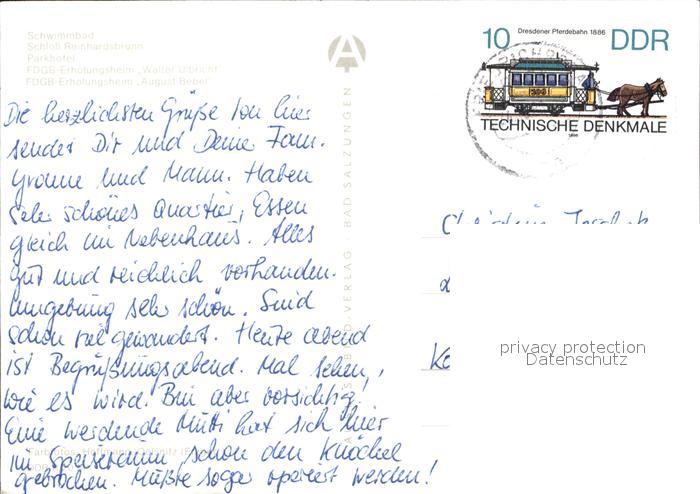 Schwimmbad
Schloß Reinhardsbrunn
Parkhotel
FDGB-Erholungsheim „Walter Ulbricht"
FDGB-Erholungsheim „August Bebel"
Die herzlichsten Grüße von hier
sendet Dir und Deine Fam.
Yvonne und Mann. Haben
sehr schönes Quartier, Essen
gleich im Nebenhaus. Alles
gut und reichlich vorhanden.
Umgebung sehr schön. Sind
schon viel gewandert. Heute abend
ist Begrüßungsabend. Mal sehen,
wie es wird. Bin aber vorsichtig.
Eine werdende Mutti hat sich hier
im Speiseraum schon den Knöchel
gebrochen. Müßte sogar operiert werden!
VERLAG · BAD SALZUNGEN
10 Dresdener Pferdebahn 1886 DDR
TECHNISCHE DENKMALE
1986
privacy protection
Datenschutz